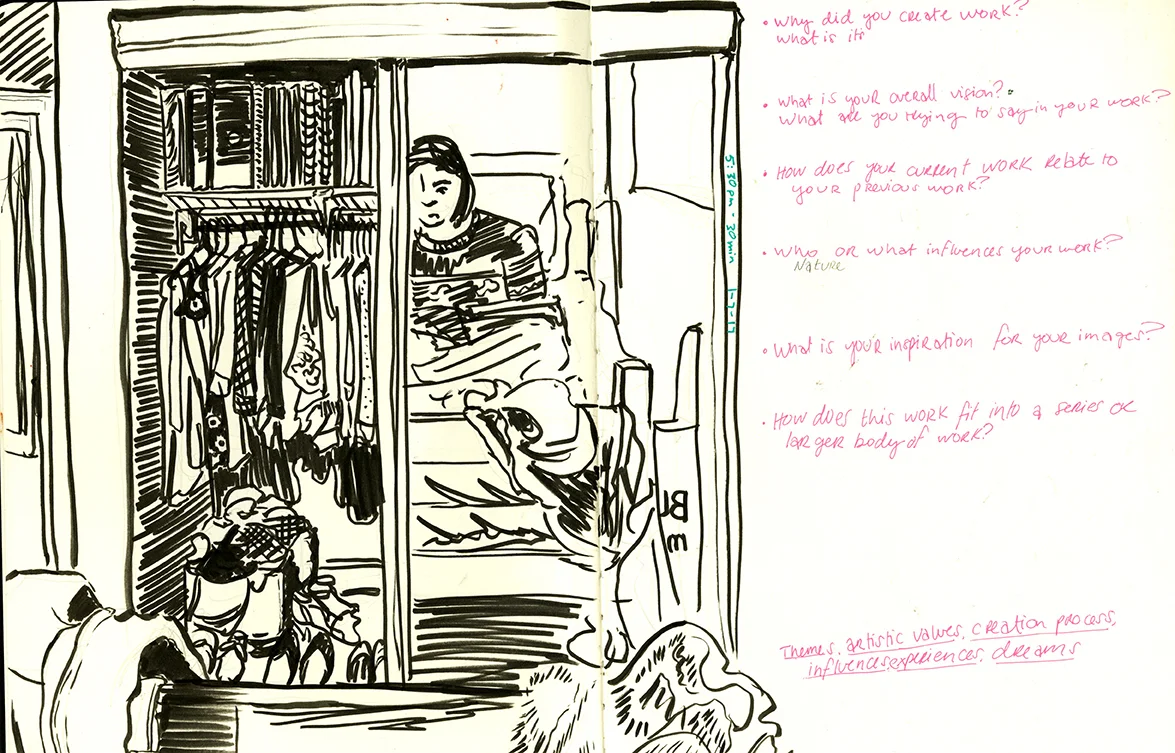 • Why did you create work?
What is it?
• What is your overall vision?
What are you trying to say in your work?
• How does your current work relate to
your previous work?
• Who or what influences your work?
Nature
• What is your inspiration for your images?
• How does this work fit into a series or
larger body of work?
Themes, artistic values, creation process,
influences, experiences, dreams
5:30pm - 30min 1-7-17
BL
m